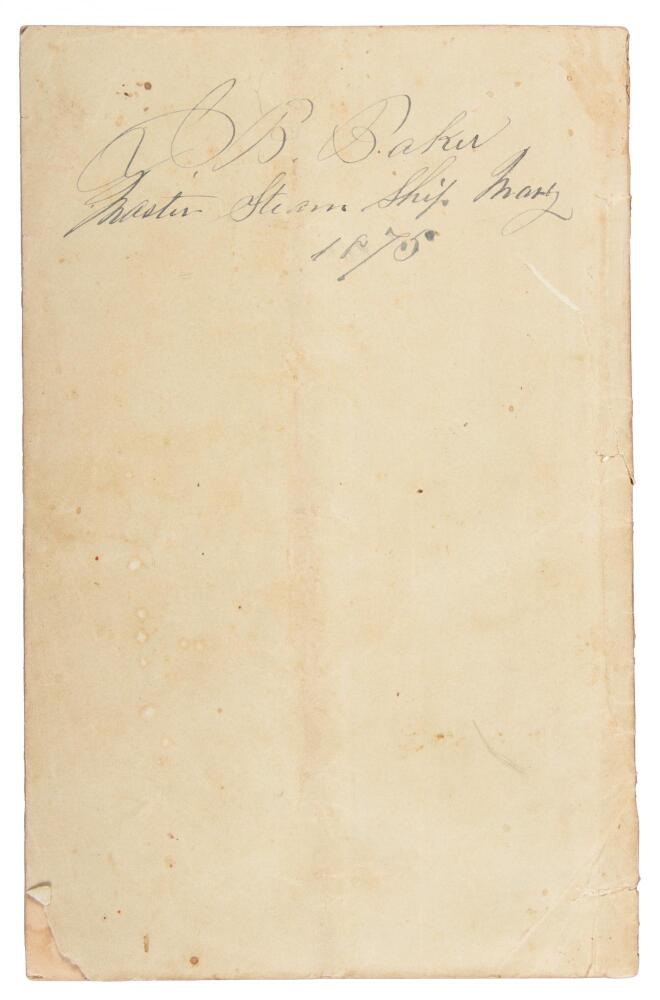 J B. Baker
Master Steam Ship Mary
1875